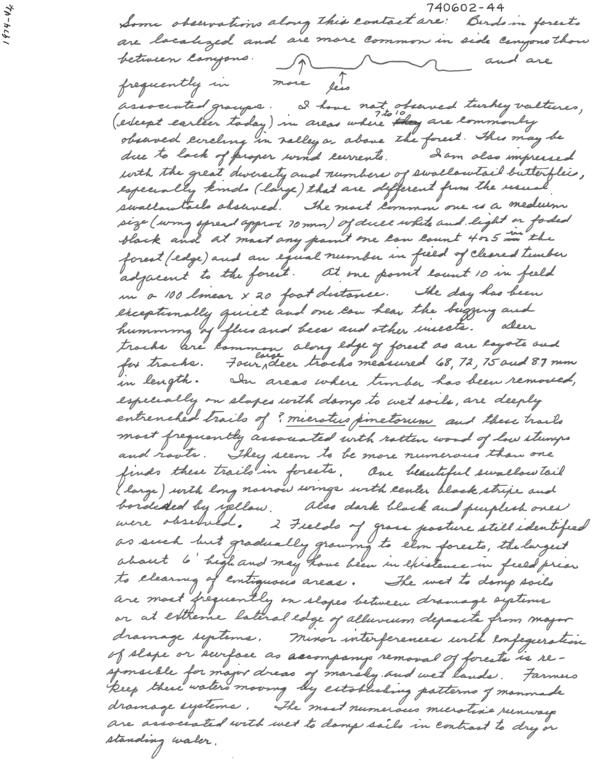 740602-44
1974-A4
Some observations along this contact are: Birds in forests
are localized and are more common in side canyons than
between canyons. and are
frequently in more less
associated groups. I have not observed turkey vultures,
(except earlier today) in areas where 7 to 10 are commonly
observed circling in valley or above the forest. This may be
due to lack of proper wind currents. I am also impressed
with the great diversity and numbers of swallowtail butterflies,
especially kinds (large) that are different from the usual
swallowtails observed. The most common one is a medium
size (wing spread approx 70 mm) of white and light or faded
black and at most any point one can count 4 or 5 in the
forest (edge) and an equal number in field of cleared timber
adjacent to the forest. At one point count 10 in field
in a 100 linear x 20 foot distance. The day has been
exceptionally quiet and one can hear the buzzing and
humming of flies and bees and other insects. Deer
tracks are common along edge of forest as are coyote and
fox tracks. Four large deer tracks measured 68, 72, 75 and 87 mm
in length. In areas where timber has been removed,
especially on slopes with damp to wet soils, are deeply
entrenched trails of ? microtus pinetorum and these trails
most frequently associated with rotten wood of low stumps
and roots. They seem to be more numerous than one
finds these trails in forests. One beautiful swallowtail
(large) with long narrow wings with center black stripe and
bordered by yellow. Also dark black and purplish ones
were observed. 2 Fields of grass pasture still identified
as such but gradually growing to elm forests, the largest
about 6' high and may have been in existence in field prior
to clearing of contiguous areas. The wet to damp soils
are most frequently on slopes between drainage systems
or at extreme lateral edge of alluvium deposits from major
drainage systems. Minor interferences with configuration
of slope or surface as accompany removal of forests is re-
sponsible for major areas of marshy and wet lands. Farmers
keep these waters moving by establishing patterns of manmade
drainage systems. The most numerous microtine runways
are associated with wet to damp soils in contrast to dry or
standing water.